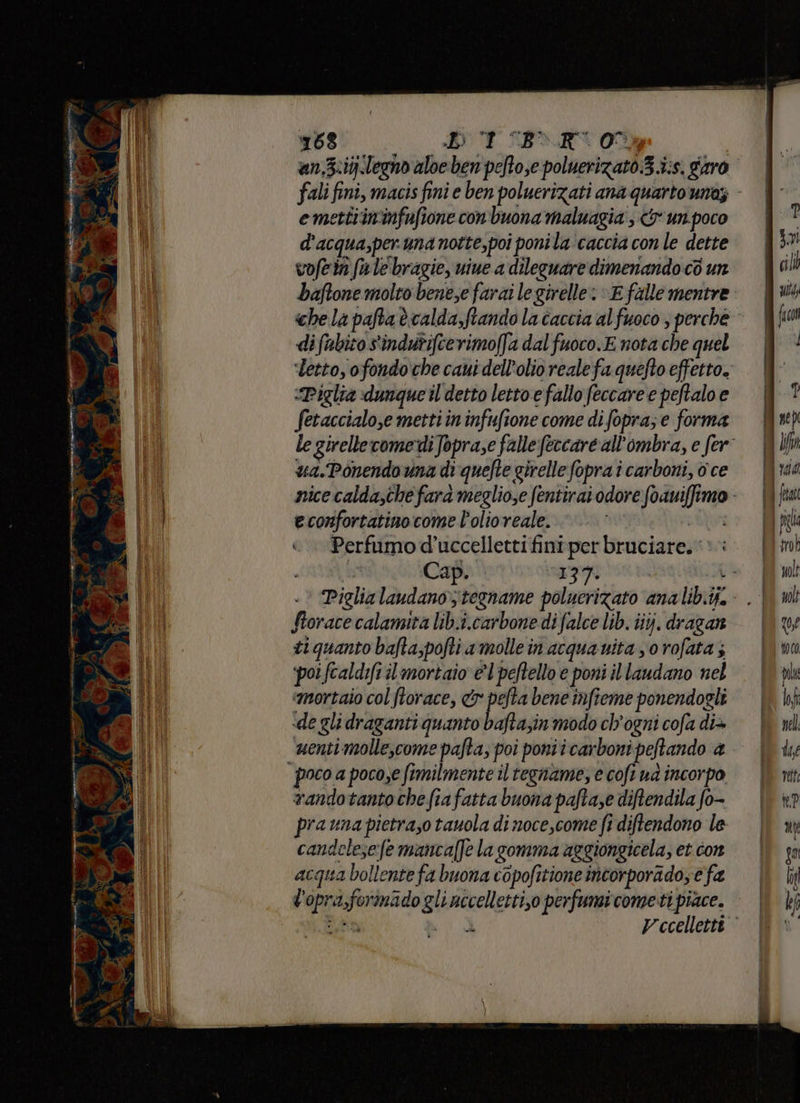 168 L I B R O
an.ʒ.iij.legno aloe ben pesto,e poluerizato.ʒ.i.s. garo
fali fini, macis fini e ben poluerizati ana quarto uno;
e metti in infusione con buona maluagia, & un poco
d'acqua,per una notte,poi poni la caccia con le dette
cose in su le bragie, uiue a dileguare dimenando cō un
bastone molto bene,e farai le girelle: E falle mentre
che la pasta è calda,stando la caccia al fuoco, perche
di subito s'indurisce rimossa dal fuoco.E nota che quel
letto, o fondo che caui dell'olio reale fa questo effetto.
Piglia dunque il detto letto e fallo seccare e pestalo e
setaccialo,e metti in infusione come di sopra; e forma
le girelle come di sopra,e falle seccare all'ombra, e ser
ua.Ponendo una di queste girelle sopra i carboni, o ce
nice calda,che farà meglio,e sentirai odore soauissimo
e confortatiuo come l'olio reale.
Perfumo d'uccelletti fini per bruciare.
Cap. 137.
Piglia laudano, tegname poluerizato ana lib.ij.
storace calamita lib.i.carbone di salce lib. iiij. dragan
ti quanto basta,posti a molle in acqua uita, o rosata;
poi scaldisi il mortaio e'l pestello e poni il laudano nel
mortaio col storace, & pesta bene insieme ponendogli
de gli draganti quanto basta,in modo ch'ogni cosa di-
uenti molle,come pasta, poi poni i carboni pestando a
poco a poco,e similmente il tegname, e cosi uà incorpo
rando tanto che sia fatta buona pasta,e distendila so-
pra una pietra,o tauola di noce,come si distendono le
candele,e se mancasse la gomma aggiongicela, et con
acqua bollente fa buona cōpositione incorporādo, e fa
l'opra,formādo gli uccelletti,o perfumi come ti piace.
Vccelletti